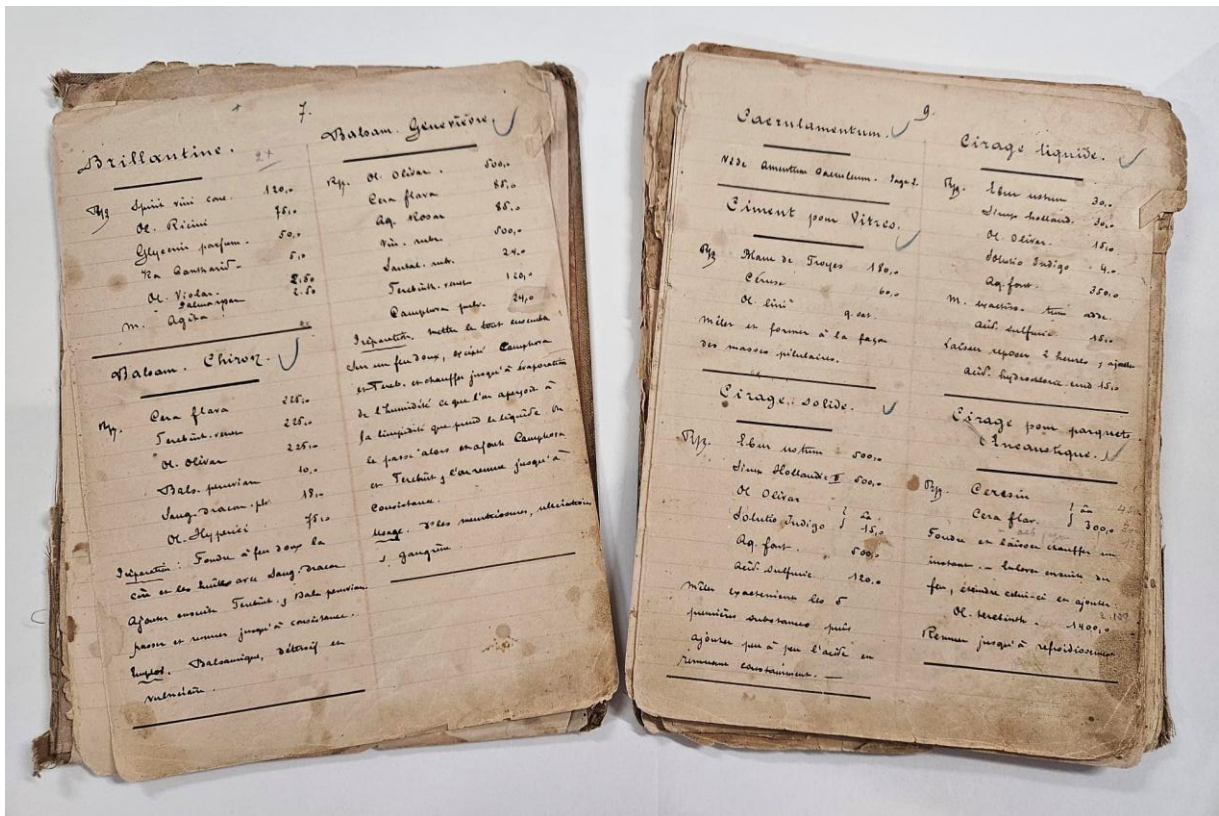 7.
Brillantine.
Spirit vini conc. 120,0
Ol. Ricini 75,0
Glycerin parfum. 50,0
Cantharid. 5,0
Ol. Violar. 2.50
2.50
M. Agita.
Balsam. Chiron
Rp. Cera flava 225,0
Terebint. venet 225,0
Ol. Olivar 225,0
Bals. peruvian 10,0
Sang. dracon. plv. 18,0
Ol. Hyperici 75,0
Préparation : Fondre à feu doux la
cire et les huiles avec Sang. dracon
Ajouter ensuite Terebint. & Bals peruvian
passer et remuer jusqu'à consistance.
Emploi. Balsamique, détersif et
vulnéraire.
Balsam. Geneviève
Rp. Ol. Olivar. 500,0
Cera flava 85,0
Aq. Rosar 85,0
Vin. rubr. 500,0
Santal. rub. 24,0
Terebinth. venet 120,0
Camphora pulv. 24,0
Préparation. Mettre le tout ensemble
sur un feu doux, excepté Camphora
et Tereb. et chauffer jusqu'à évaporation
de l'humidité ce que l'on aperçoit à
la limpidité que prend le liquide. On
le passe alors et ajoute Camphora
et Terebint & l'on remue jusqu'à
consistance.
Usage. Ds les meurtrissures, ulcérations
& gangrène.
9.
Caerulamentum.
Vide Amenthum Caeruleum. Page 2.
Ciment pour Vitres.
Rp. Blanc de Troyes 180,0
Céruse 60,0
Ol. lini q. sat.
mêler et former à la façon
des masses pilulaires.
Cirage solide.
Rp. Ebur ustum 500,0
Hollandic 500,0
Ol Olivar
Solutio Indigo } āā 15,0
Aq. font. 500,0
Acid. Sulfuric 120,0
Mêler exactement les 5
premières substances puis
ajouter peu à peu l'acide en
remuant constamment.
Cirage liquide.
Rp. Ebur ustum 30,0
holland. 30,0
Ol. Olivar. 15,0
Solutio Indigo 4,0
Aq. font. 350,0
M. exactiss. tum adde
Acid. sulfuric. 15,0
Laisser reposer 2 heures & ajouter
Acid. hydrochloric crud 15,0
Cirage pour parquets
Encaustique.
Rp. Ceresin
Cera flav. } āā 300,0
Fondre et laisser chauffer un
instant. Enlever ensuite du
feu, éteindre celui-ci et ajouter:
Ol. terebinth. 1400,0
Remuer jusqu'à refroidissement